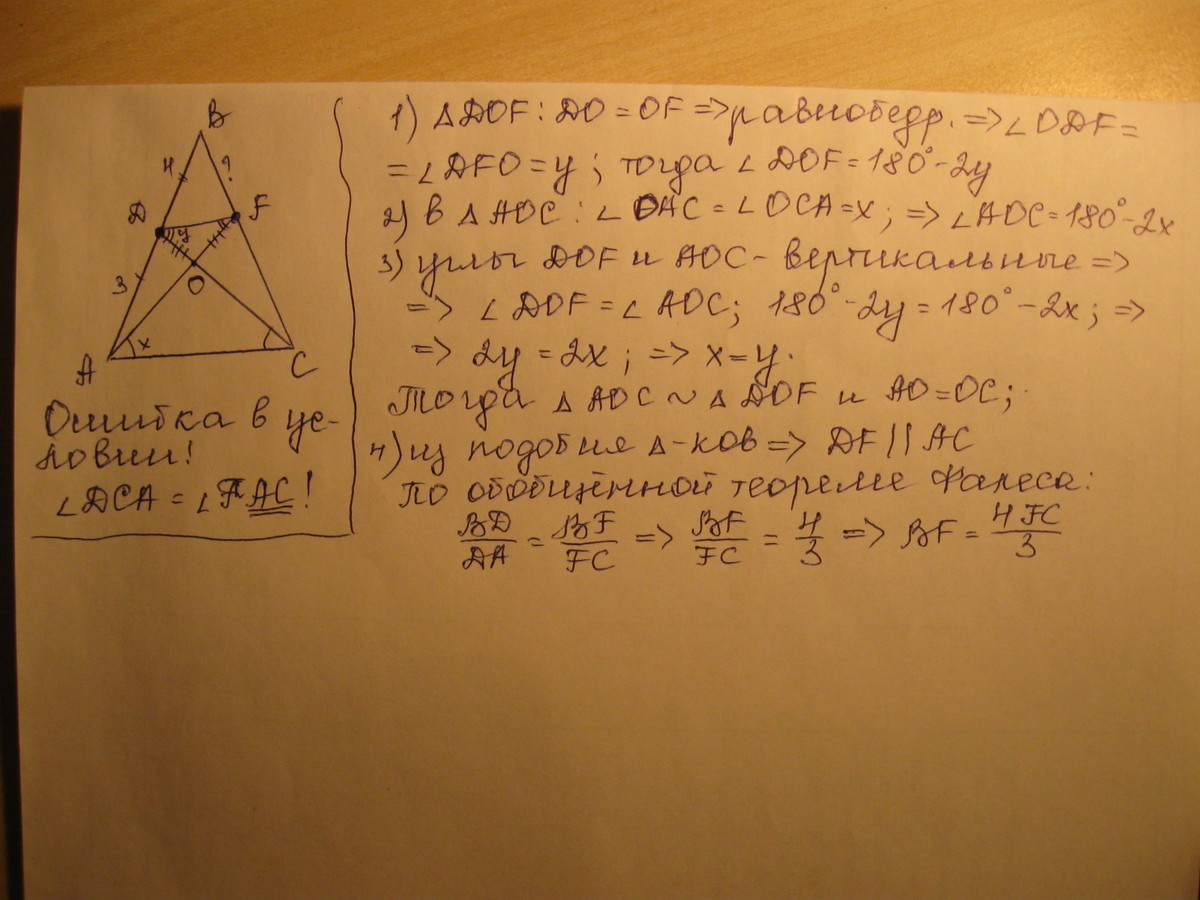 B
4
?
D
y
F
3
O
x
A
C
Ошибка в ус-
ловии!
∠DCA = ∠FAC!
1) △DOF: DO = OF => равнобедр. => ∠ODF =
= ∠DFO = y; тогда ∠DOF = 180° - 2y
2) в △AOC: ∠OAC = ∠OCA = x; => ∠AOC = 180° - 2x
3) углы DOF и AOC - вертикальные =>
=> ∠DOF = ∠AOC; 180° - 2y = 180° - 2x; =>
=> 2y = 2x; => x = y.
Тогда △AOC ~ △DOF и AO = OC;
4) из подобия △-ков => DF || AC
По обобщённой теореме Фалеса:
BD/DA = BF/FC => BF/FC = 4/3 => BF = 4FC/3